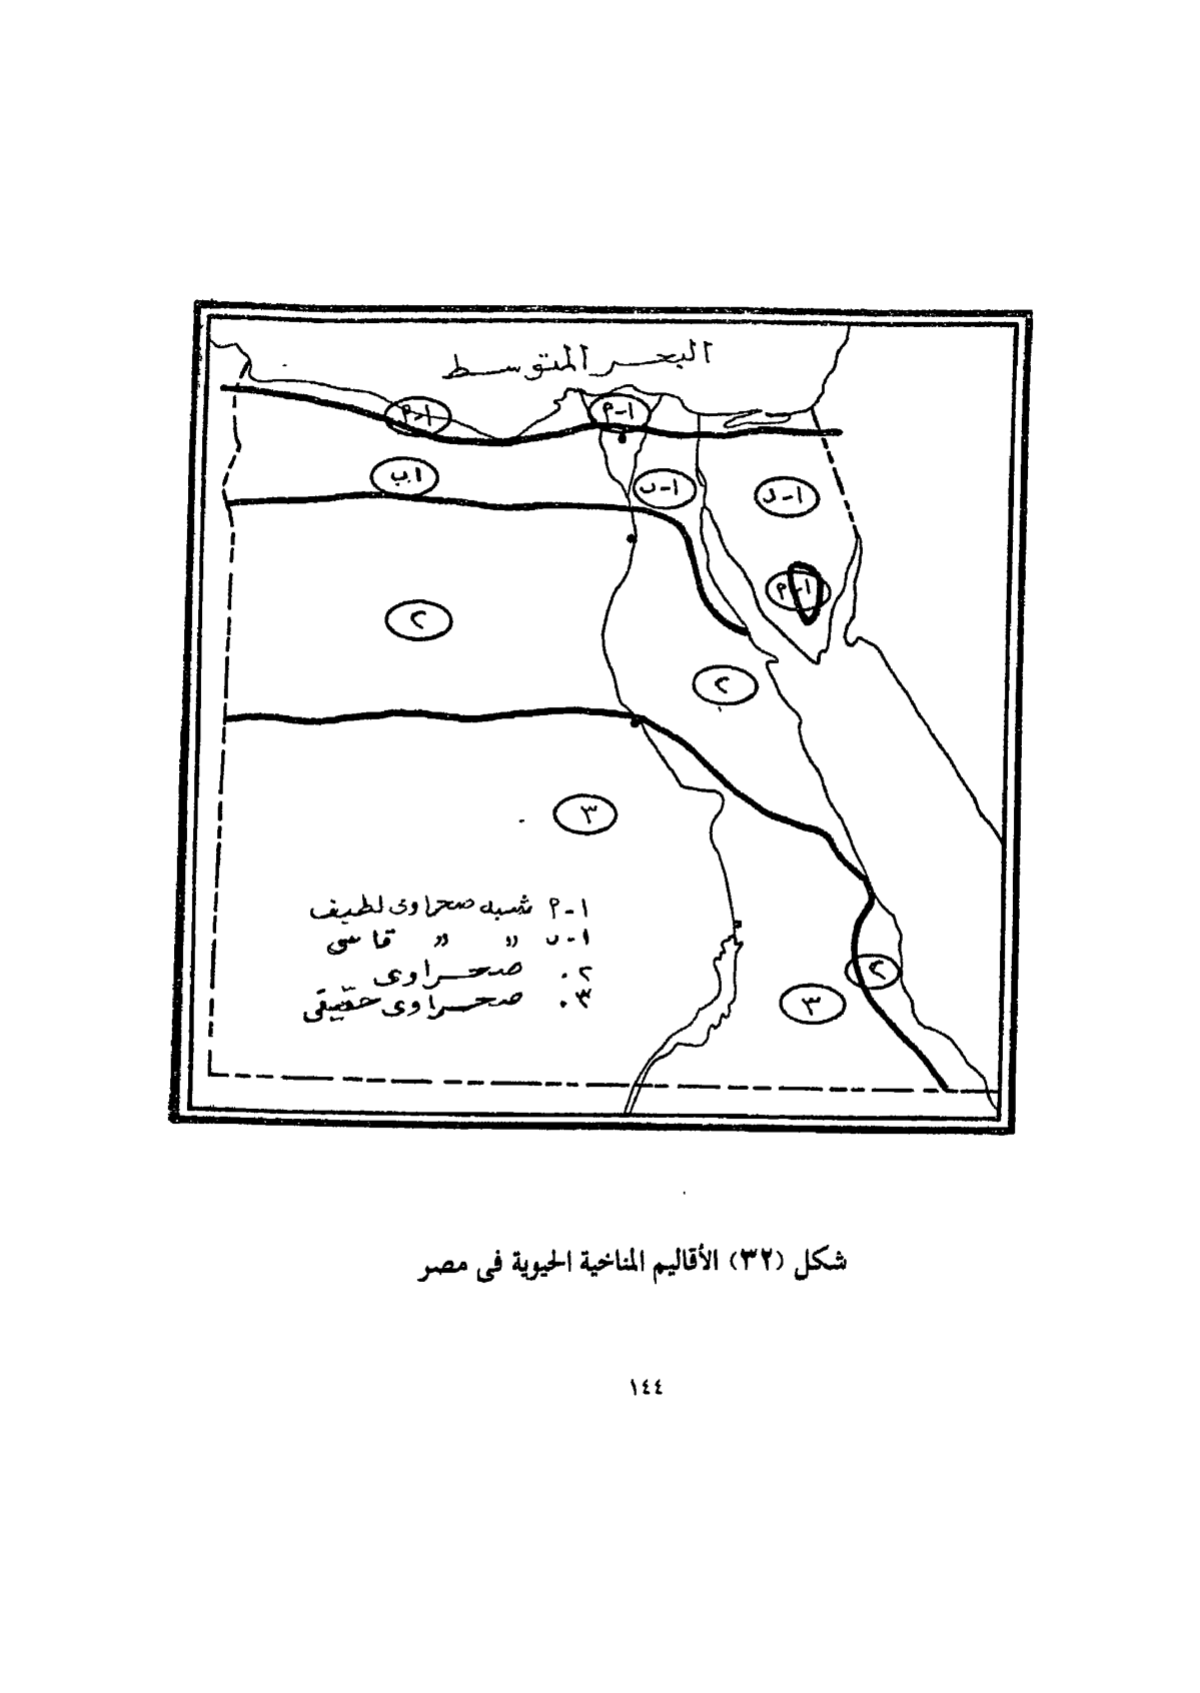 البحر المتوسط
١-م
١-م
١.ب
١-ب
١-ب
١-م
٢
٢
٣
١-م شبه صحراوى لطيف
١-ب " " قاسى
٢. صحراوى
٣. صحراوى حقيقى
٢
٣
شكل (٣٢) الأقاليم المناخية الحيوية فى مصر
١٤٤